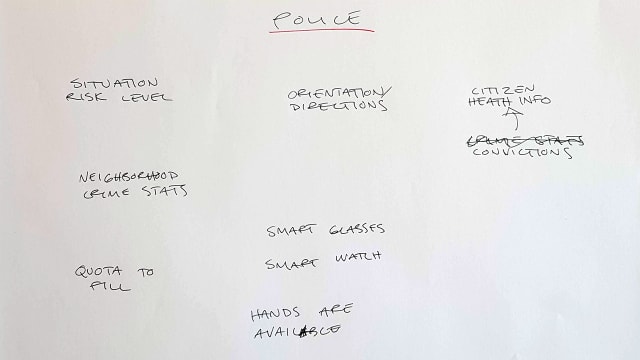 POLICE
SITUATION
RISK LEVEL
ORIENTATION/
DIRECTIONS
CITIZEN
HEATH INFO
CRIME STATS
CONVICTIONS
NEIGHBORHOOD
CRIME STATS
SMART GLASSES
SMART WATCH
QUOTA TO
FILL
HANDS ARE
AVAILABLE